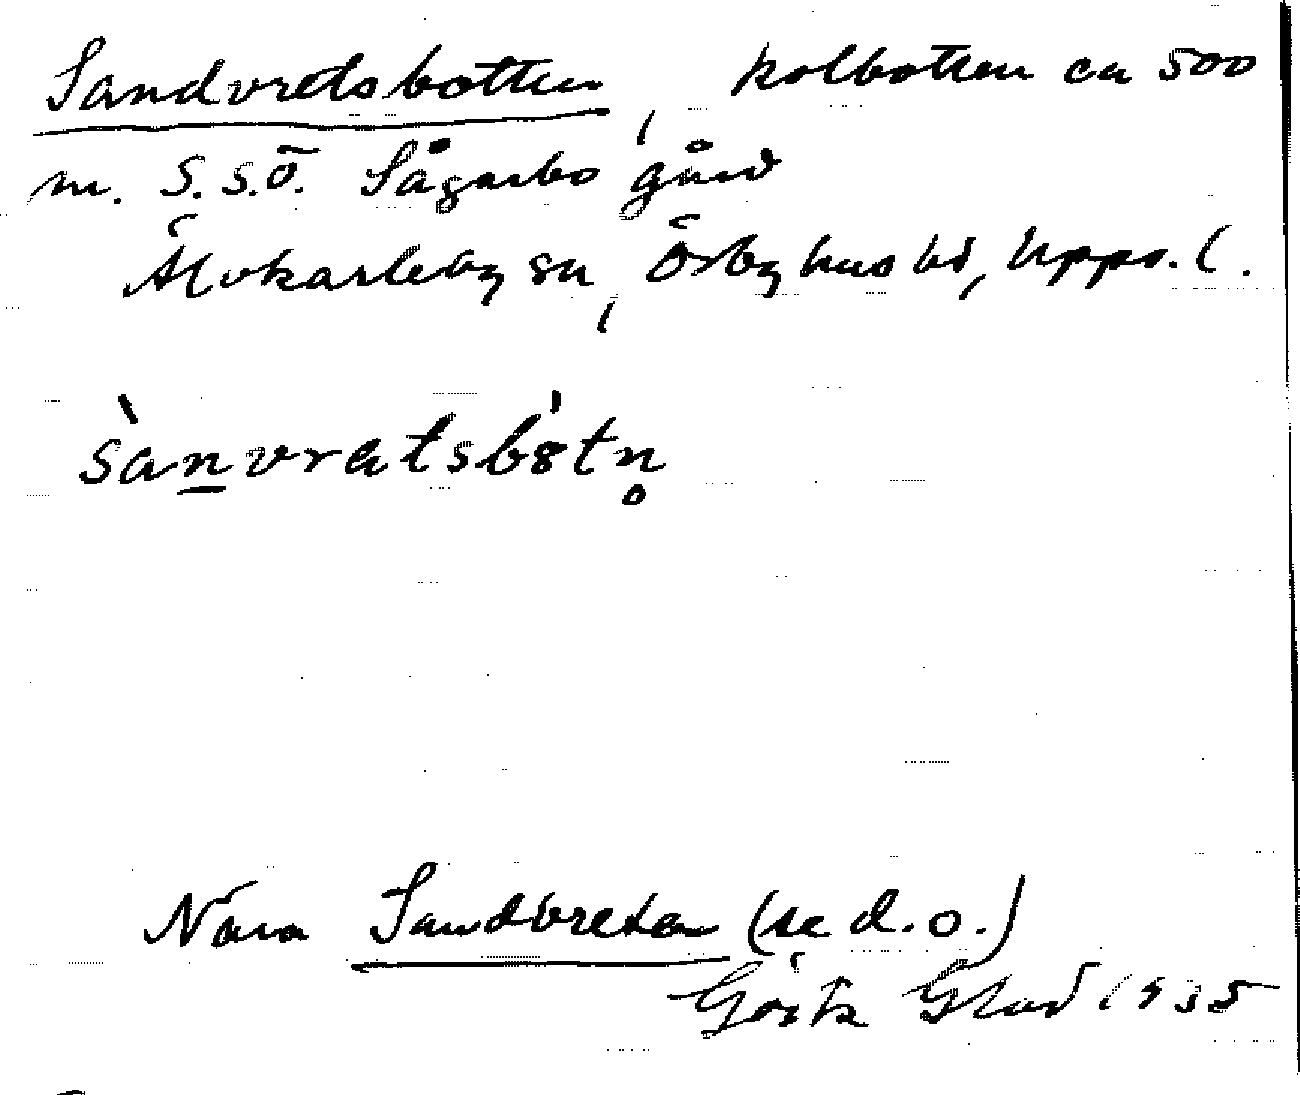 Sandvretsbotten, kolbotten ca 500
m. S.S.Ö. Sågarbo gård
Älvkarleby sn, Örbyhus hd, Upps. l.
sànvretsbòtn̥
Nära Sandvreten (se d.o.)
Gösta Glad 1935